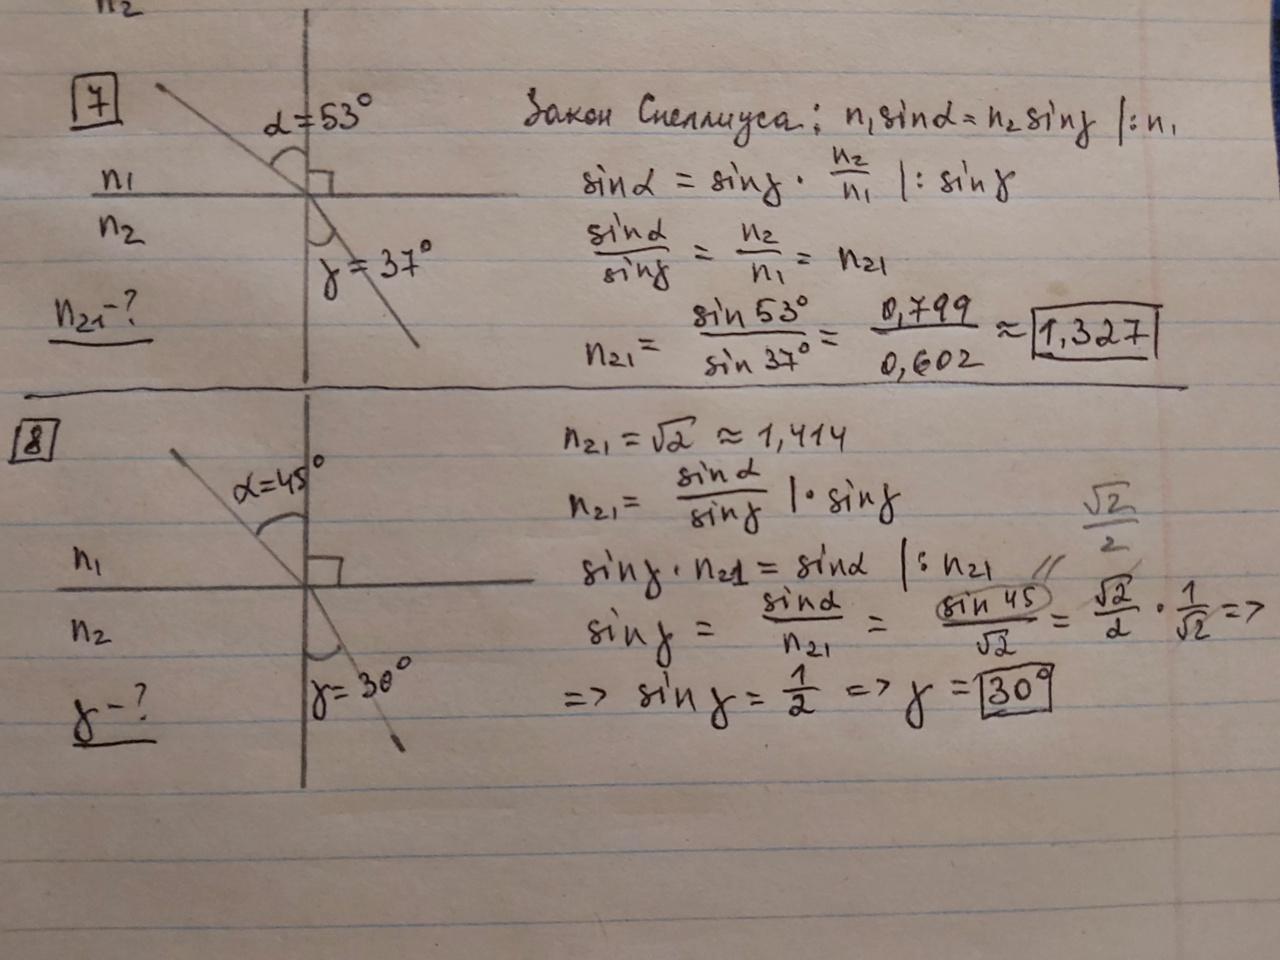 n₂
7
α = 53°
n₁
n₂
γ = 37°
n₂₁ - ?
Закон Снеллиуса: n₁ sinα = n₂ sinγ |: n₁
sinα = sinγ · n₂/n₁ |: sinγ
sinα/sinγ = n₂/n₁ = n₂₁
n₂₁ = sin 53°/sin 37° = 0,799/0,602 ≈ 1,327
8
α=45°
n₁
n₂
γ = 30°
γ - ?
n₂₁ = √2 ≈ 1,414
n₂₁ = sinα/sinγ | · sinγ
sinγ · n₂₁ = sinα |: n₂₁
√2/2
sinγ = sinα/n₂₁ = sin 45/√2 = √2/2 · 1/√2 =>
=> sinγ = 1/2 => γ = 30°